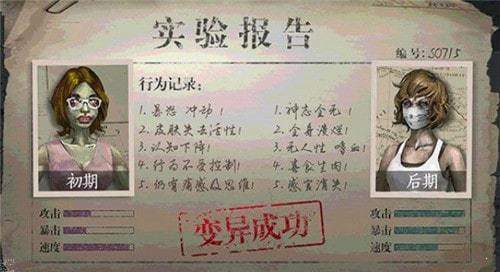 实验报告
编号:S0715
行为记录:
1.暴怒 冲动!
2.皮肤失去活性!
3.认知下降!
4.行为不受控制!
5.仍有痛感及思维!
1.神志全无!
2.全身溃烂!
3.无人性 嗜血!
4.喜食生肉!
5.感官消失!
初期
后期
攻击
暴击
速度
变异成功
攻击
暴击
速度